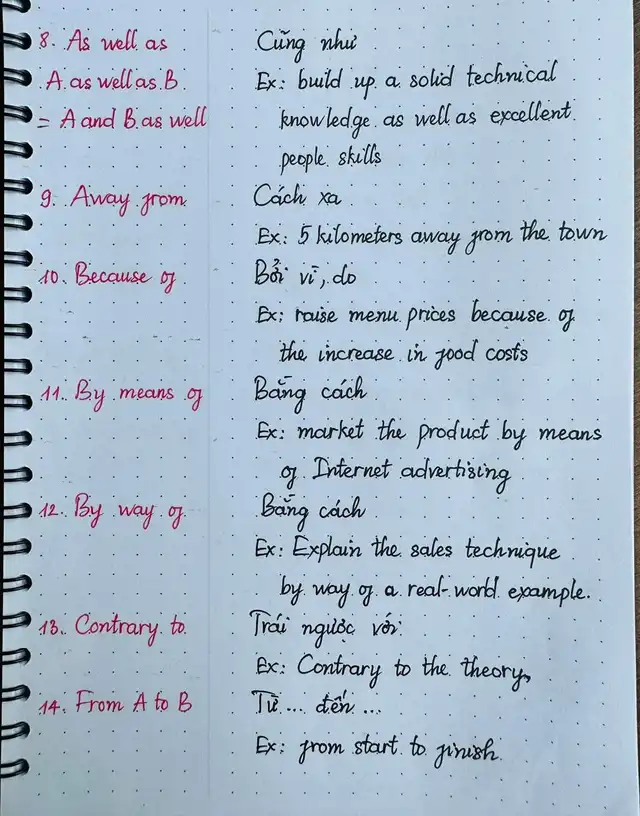 8. As well as Cũng như
A as well as B Ex: build up a solid technical
= A and B as well knowledge as well as excellent
people skills
9. Away from Cách xa
Ex: 5 kilometers away from the town
10. Because of Bởi vì, do
Ex: raise menu prices because of
the increase in food costs
11. By means of Bằng cách
Ex: market the product by means
of Internet advertising
12. By way of Bằng cách
Ex: Explain the sales technique
by way of a real-world example.
13. Contrary to Trái ngược với
Ex: Contrary to the theory,
14. From A to B Từ ... đến ...
Ex: from start to finish